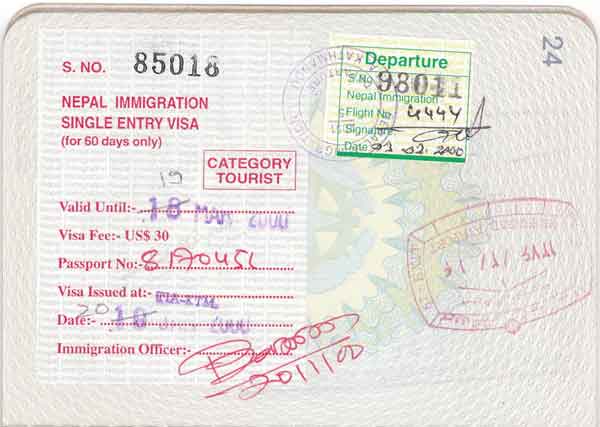 24
S. NO. 85016
NEPAL IMMIGRATION
SINGLE ENTRY VISA
(for 60 days only)
CATEGORY
TOURIST
19
Valid Until:- 18 MAR 2000
Visa Fee:- US$ 30
Passport No:-
Visa Issued at:- TIA-KTM
20
Date:- 18 2000
Immigration Officer:-
20/1/00
Departure
S.No 98011
Nepal Immigration
Flight No 4444
Signature
Date 03.02.2000